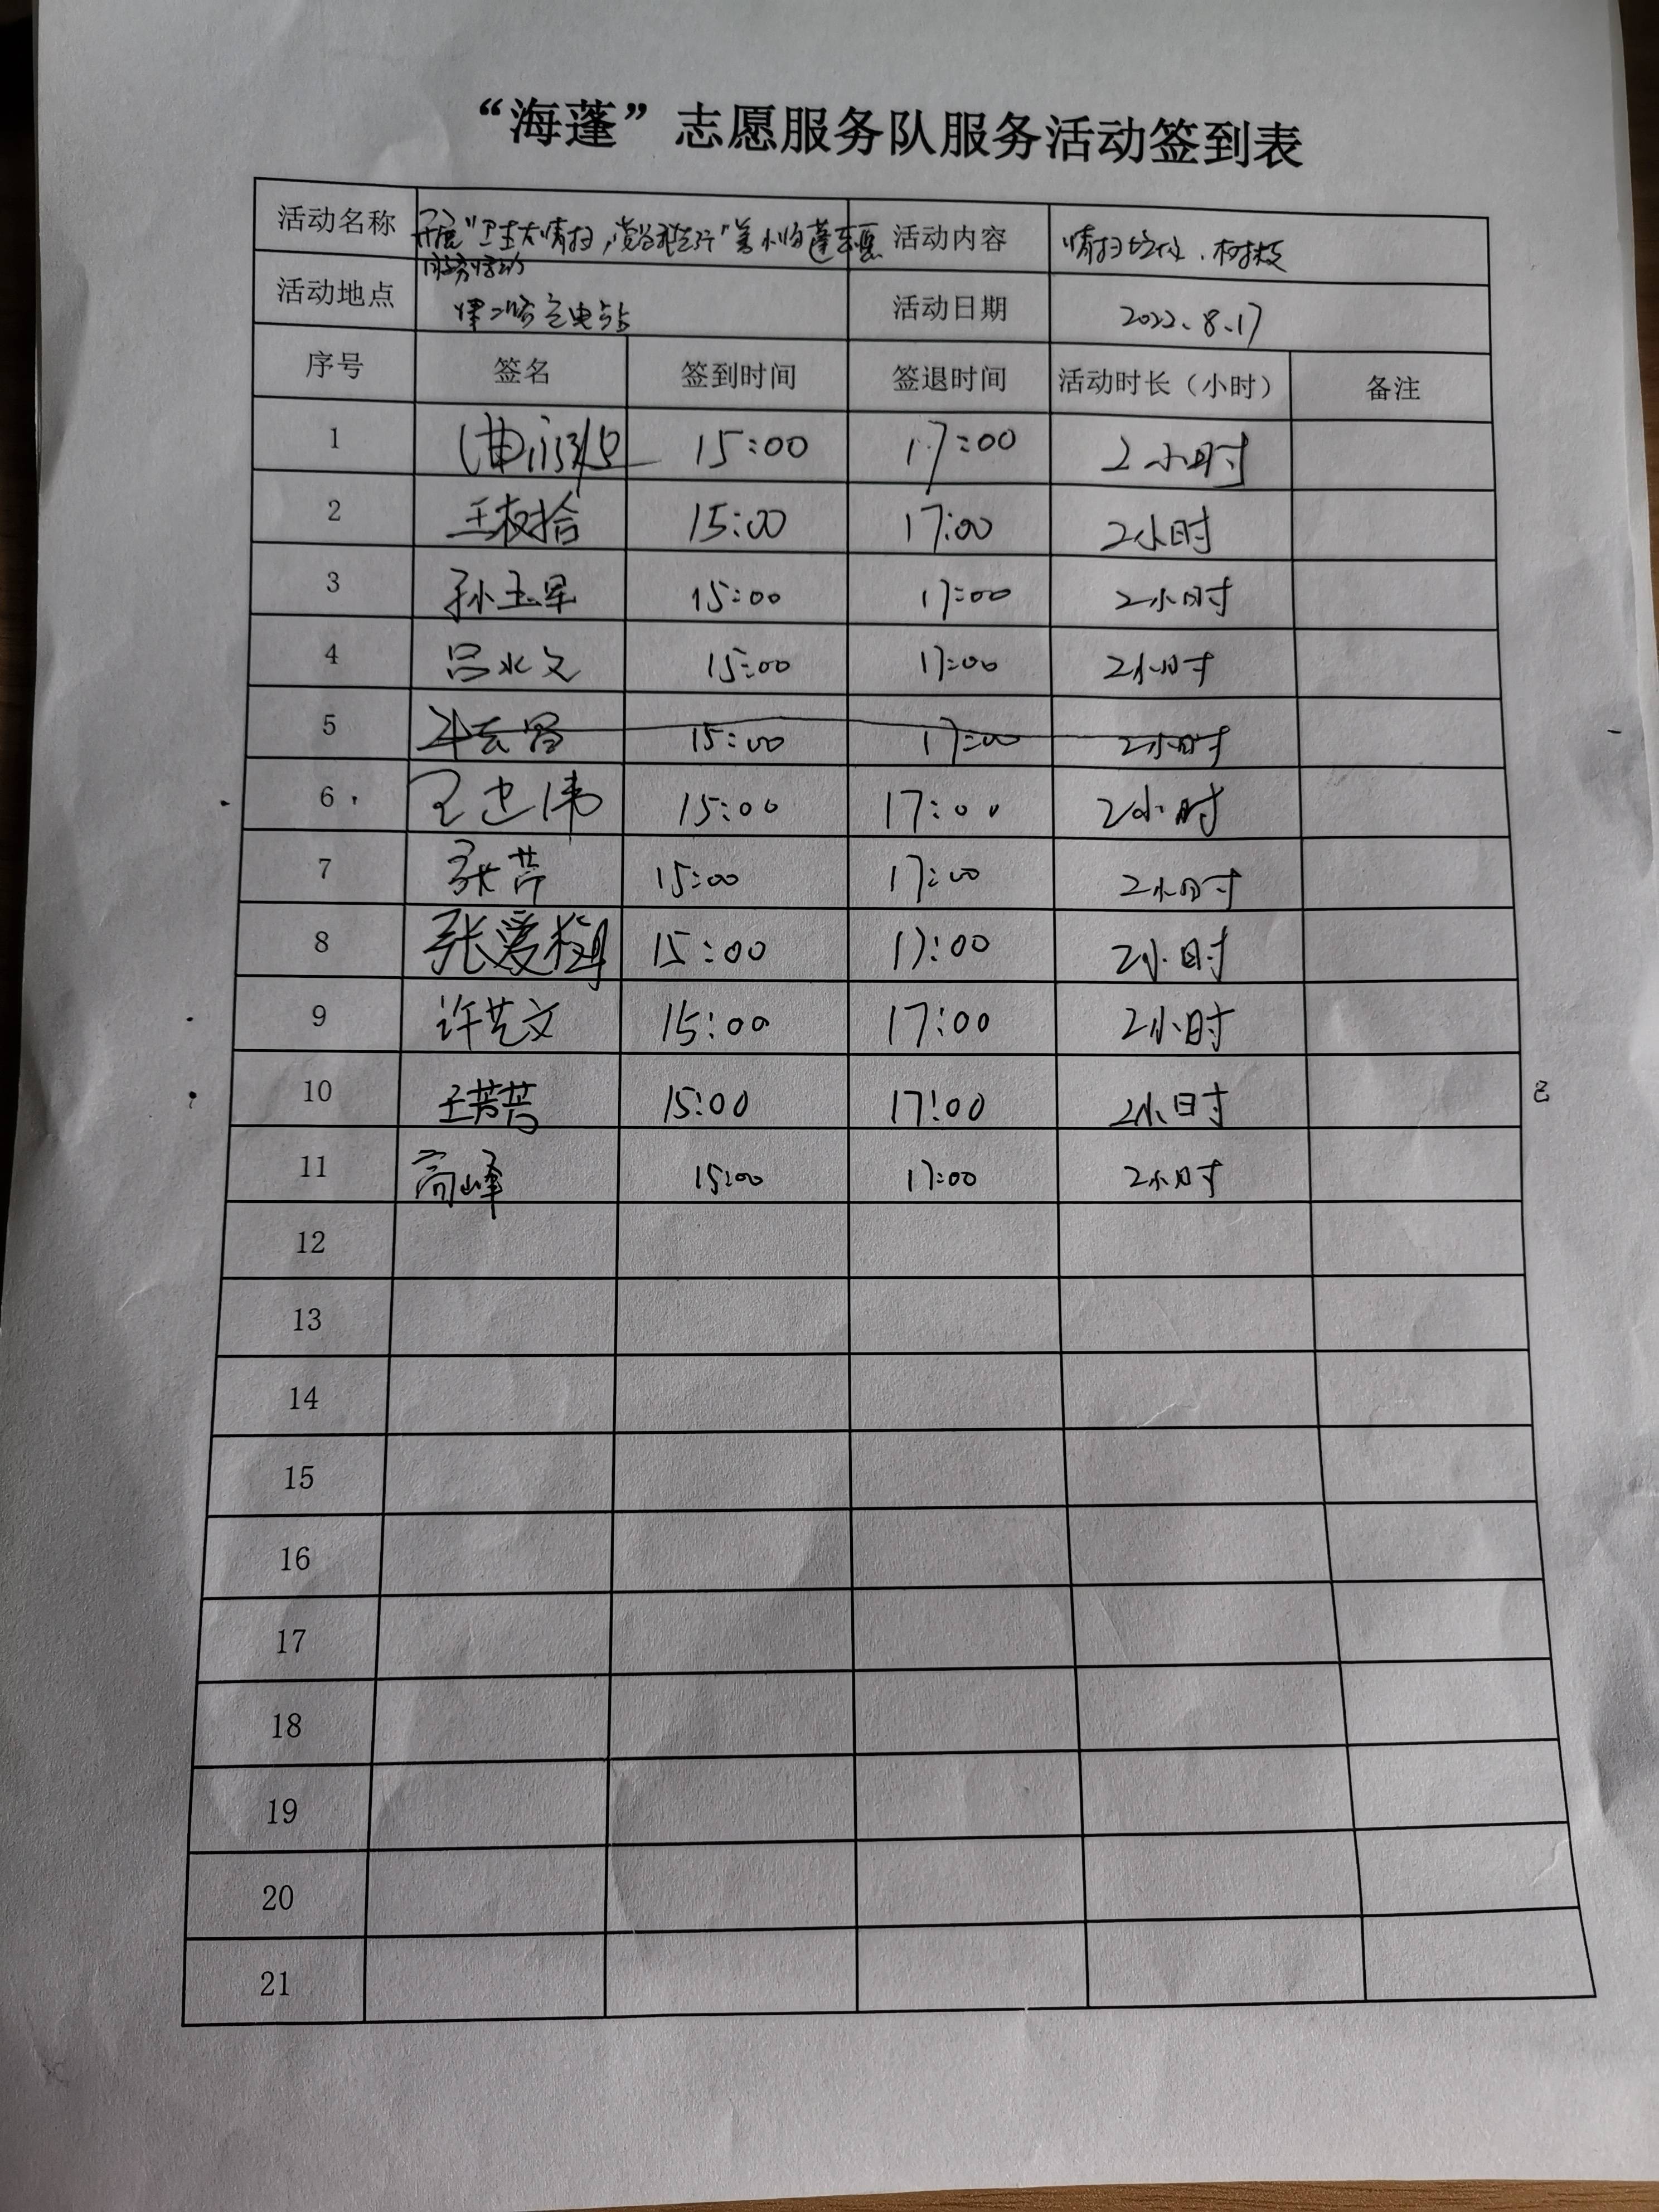 “海蓬”志愿服务队服务活动签到表
活动名称 开展“卫生大清扫，党员 先行” 活动内容 清扫垃圾、树枝
服务活动
活动地点 变电站 活动日期 2022.8.17
序号 签名 签到时间 签退时间 活动时长（小时） 备注
1 15:00 17:00 2小时
2 王枝拾 15:00 17:00 2小时
3 孙玉军 15:00 17:00 2小时
4 吕水文 15:00 17:00 2小时
5 15:00 17:00 2小时
6 王卫伟 15:00 17:00 2小时
7 张芹 15:00 17:00 2小时
8 张爱 15:00 17:00 2小时
9 许艺文 15:00 17:00 2小时
10 王芳芳 15:00 17:00 2小时
11 高峰 15:00 17:00 2小时
12
13
14
15
16
17
18
19
20
21